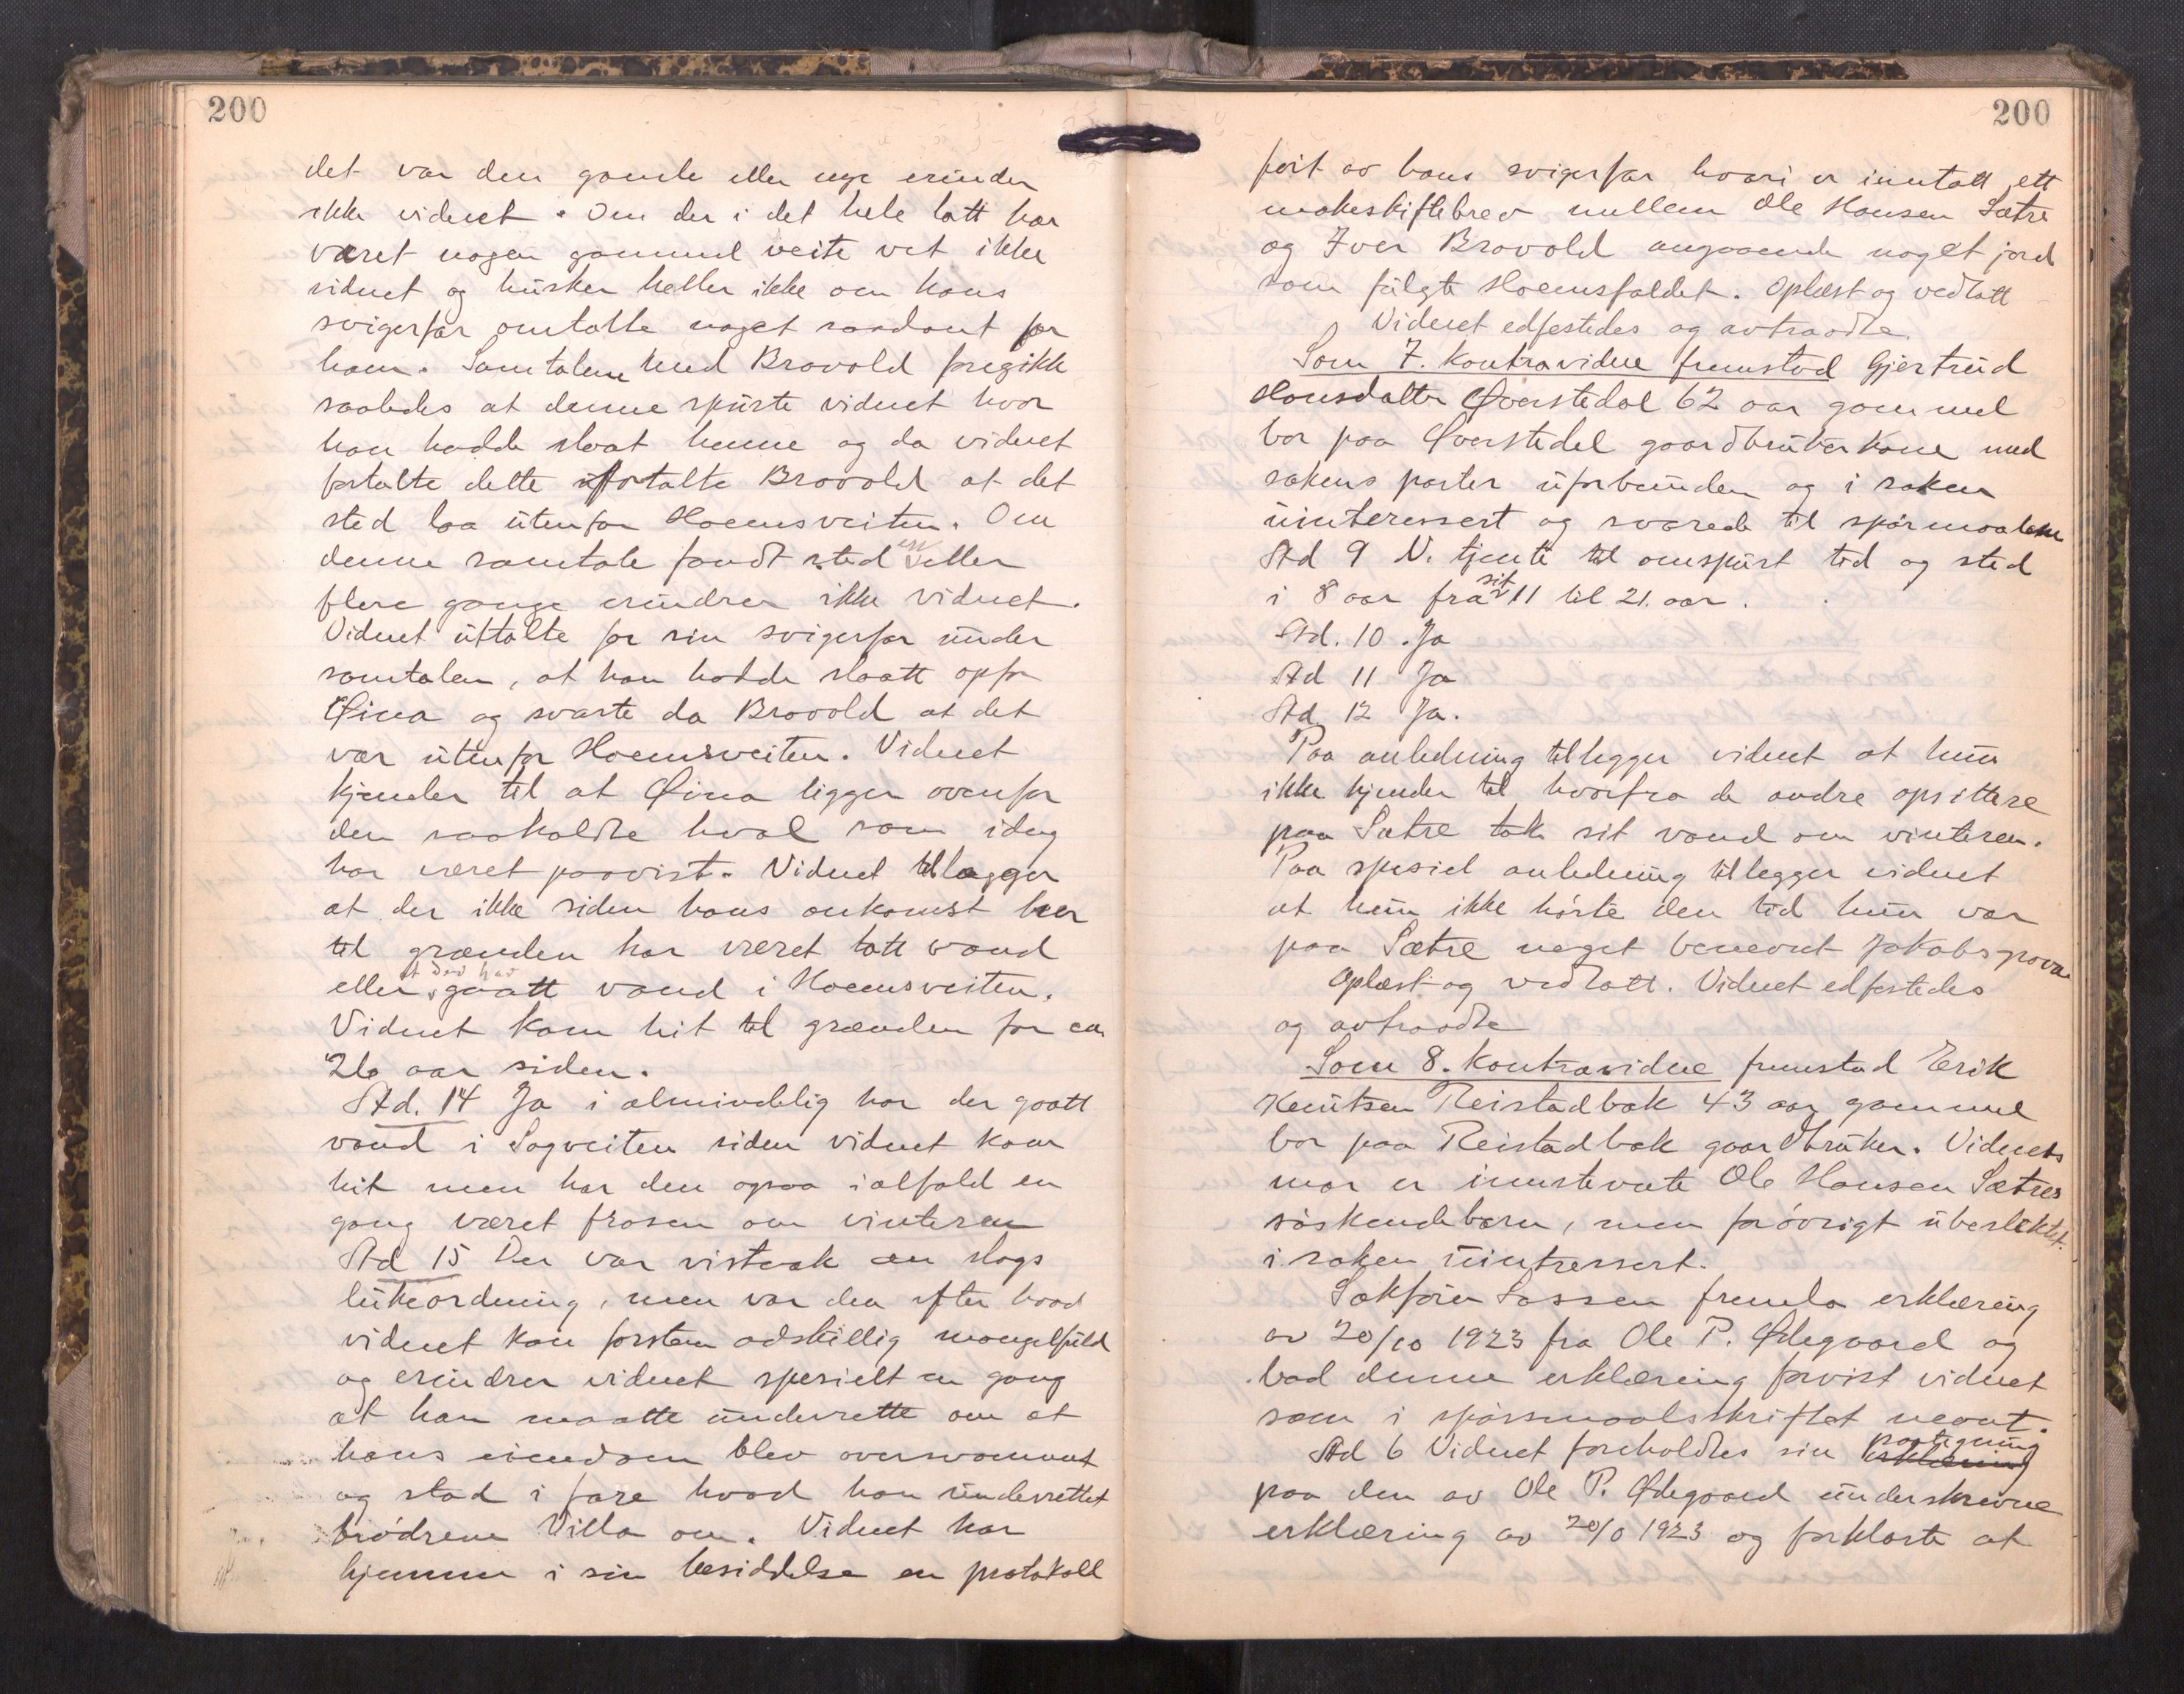 200
det var den gamle eller nye erindrer
ikke vidnet. Om der i det hele tatt har
været nogen gammel veite vet ikke
vidnet og husker heller ikke om hans
svigerfar omtalte noget saadant for
ham. Samtalen med Brovold foregikk
saaledes at denne spurte vidnet hvor
han hadde slaat henne og da vidnet
fortalte dette fortalte Brovold at det
sted laa utenfor Hoemsveiten. Om
denne samtale fandt sted en eller
flere gange erindrer ikke vidnet.
Vidnet uttalte for sin svigerfar under
samtalen, at han hadde slaatt opfor
Øina og svarte da Brovold at det
var utenfor Hoemsveiten. Vidnet
kjender til at Øina ligger ovenfor
den saakaldte hval som idag
har været paavist. Vidnet tillægger
at der ikke siden hans ankomst her
til grænden har været tatt vand
eller at det har gaatt vand i Hoemsveiten.
Vidnet kom hit til grænden for ca
26 aar siden.
Ad. 14 Ja i almindelig har der gaatt
vand i Sagveiten siden vidnet kom
hit men har den ogsaa ialfald en
gang været frosen om vinteren
Ad 15 Der var vistnok en slags
lukeordning, men var den efter hvad
vidnet kan forstaa adskillig mangelfuld
og erindrer vidnet spesielt en gang
at han maatte underrette om at
hans eiendom blev oversvømmet
og stod i fare hvad han underrettet
brødrene Villa om. Vidnet har
hjemme i sin besiddelse en protokoll
200
ført av hans svigerfar hvori er inntatt ett
makeskiftebrev mellem Ole Hansen Sætre
og Iver Brovold angaaende noget jord
som fulgte Hoemsfaldet. Oplæst og vedtatt
Vidnet edfestedes og avtraadte.
Som 7. kontravidne fremstod Gjertrud
Hansdatter Øverstedal 62 aar gammel
bor paa Øverstedal gaardbrukerkone med
sakens parter uforbunden og i saken
uinteressert og svarede til spørmaalene
Ad 9 V. tjente til omspurt tid og sted
i 8 aar fra sit 11 til 21. aar.
Ad. 10. Ja
Ad 11 Ja
Ad. 12 Ja.
Paa anledning tillegger vidnet at hun
ikke kjender til hvorfra de andre opsittere
paa Sætre tok sit vand om vinteren.
Paa spesiel anledning tillegger vidnet
at hun ikke hørte den tid hun var
paa Sætre noget benevnt Jakobsgrova
Oplæst og vedtatt. Vidnet edfestedes
og avtraadte
Som 8. kontravidne fremstod Erik
Knutsen Reistadbak 43 aar gammel
bor paa Reistadbak gaardbruker. Vidnets
mor er innstevnte Ole Hansen Sætres
søskendebarn, men forøvrigt ubeslektet.
i saken uintressert.
Sakfører Sassen fremla erklæring
av 20/10 1923 fra Ole P. Ødegaard og
bad denne erklæring forvist vidnet
som i spørsmaalsskriftet nevnt.
Ad 6 Vidnet foreholdtes sin erklæring paategning
paa den av Ole P. Ødegaard underskrevne
erklæring av 20/10 1923 og forklarte at